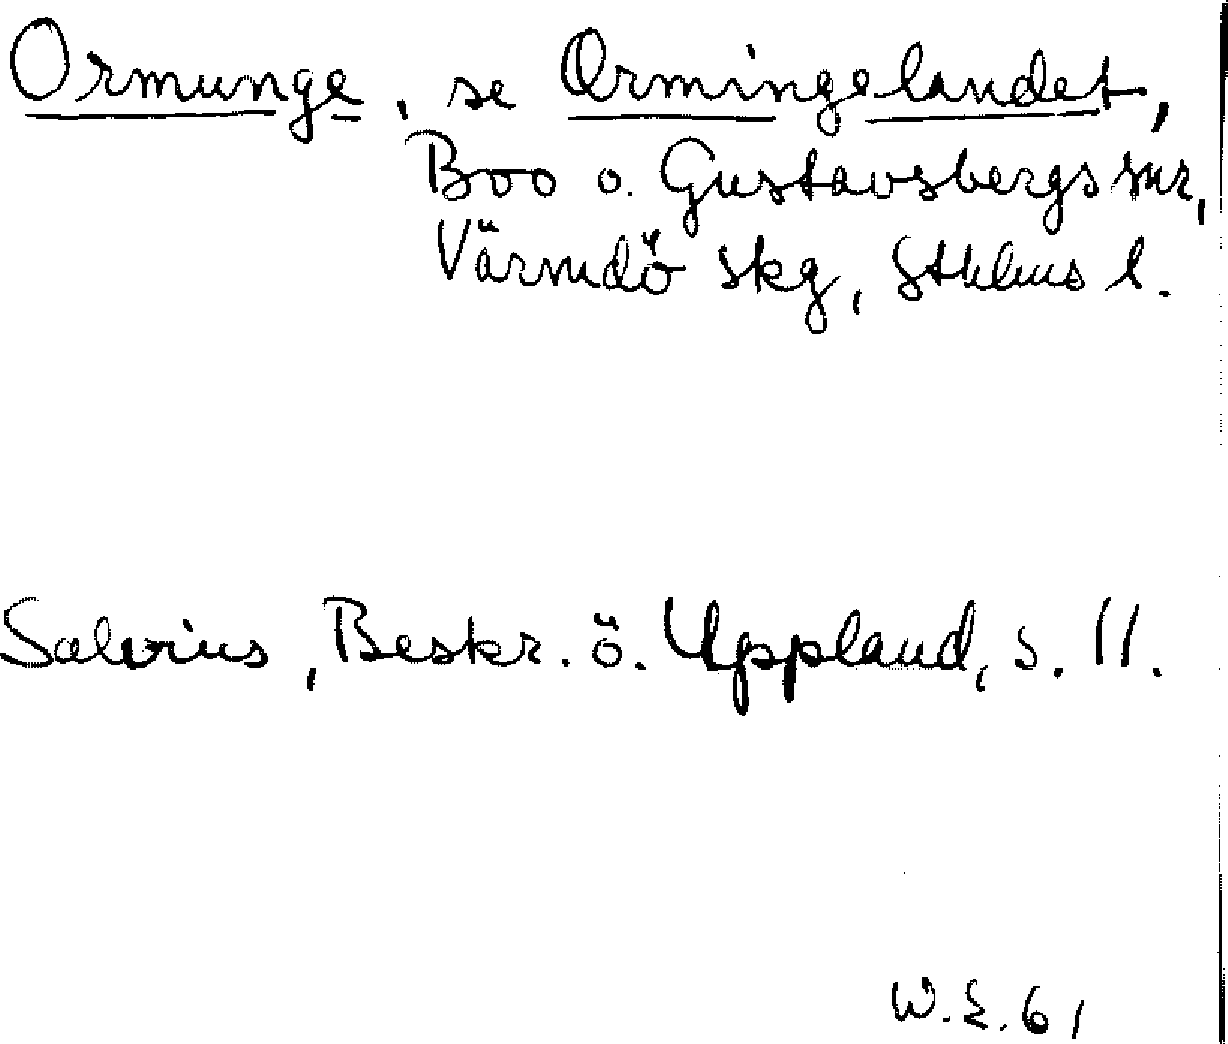 Ormunge, se Ormingelandet,
Boo o. Gustavsbergs snr,
Värmdö skg, Sthlms l.
Salvius, Beskr. ö. Uppland, s. 11.
W.E. 61